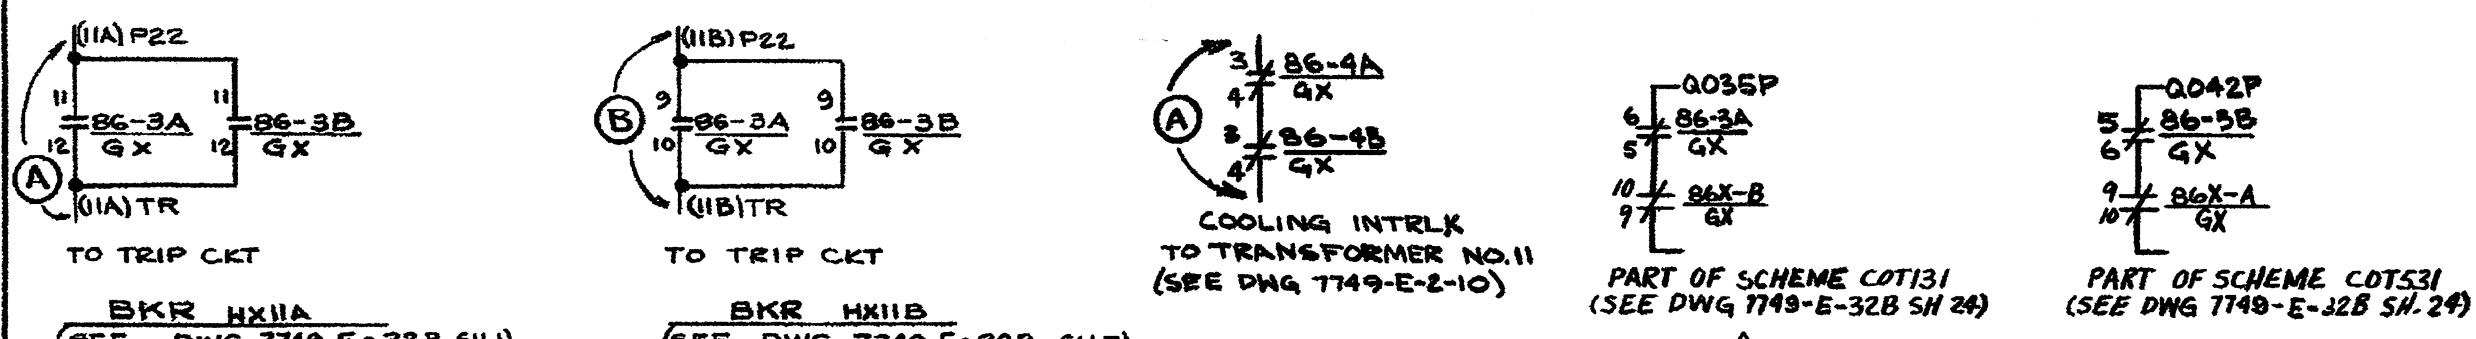 (11A) P22
11
11
86-3A
GX
86-3B
GX
12
12
A
(11A) TR
TO TRIP CKT
BKR HX11A
(11B) P22
9
9
B
86-3A
GX
86-3B
GX
10
10
(11B) TR
TO TRIP CKT
BKR HX11B
3
86-4A
GX
4
A
3
86-4B
GX
4
COOLING INTRLK
TO TRANSFORMER NO.11
(SEE DWG 7749-E-2-10)
Q035P
6
86-3A
GX
5
10
86X-B
GX
9
PART OF SCHEME COT131
(SEE DWG 7749-E-32B SH 24)
Q042P
5
86-3B
GX
6
9
86X-A
GX
10
PART OF SCHEME COT531
(SEE DWG 7749-E-32B SH. 24)